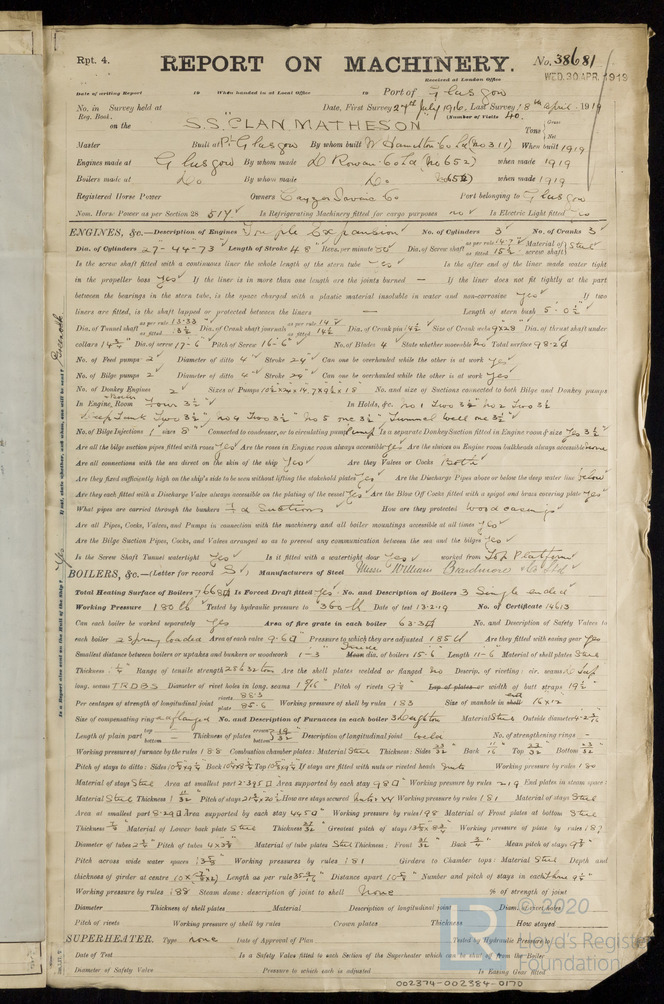 Rpt. 4.
REPORT ON MACHINERY.
No. 38681
Received at London Office
WED. 30 APR. 1919
Date of writing Report 19 When handed in at Local Office 19 Port of Glasgow
No. in Survey held at Date, First Survey 27th July 1916, Last Survey 18th April 1919
Reg. Book. (Number of Visits 40.
on the S.S. "CLAN MATHESON" Tons Gross
Net
Master Built at Pt Glasgow By whom built W Hamilton & Co Ld (No 311) When built 1919
Engines made at Glasgow By whom made D Rowan & Co Ld (No 652) when made 1919
Boilers made at Do By whom made Do (652) when made 1919
Registered Horse Power Owners Cayzer Irvine & Co Port belonging to Glasgow
Nom. Horse Power as per Section 28 517 Is Refrigerating Machinery fitted for cargo purposes no Is Electric Light fitted Yes
ENGINES, &c.—Description of Engines Triple Expansion No. of Cylinders 3 No. of Cranks 3
Dia. of Cylinders 27-44-73 Length of Stroke 48" Revs. per minute Dia. of Screw shaft as per rule 14.7" as fitted 15¼ Material of screw shaft Steel
Is the screw shaft fitted with a continuous liner the whole length of the stern tube Yes Is the after end of the liner made water tight
in the propeller boss Yes If the liner is in more than one length are the joints burned — If the liner does not fit tightly at the part
between the bearings in the stern tube, is the space charged with a plastic material insoluble in water and non-corrosive Yes If two
liners are fitted, is the shaft lapped or protected between the liners — Length of stern bush 5'-0½"
Dia. of Tunnel shaft as per rule 13.33 as fitted 13½ Dia. of Crank shaft journals as per rule 14" as fitted 14½ Dia. of Crank pin 14½ Size of Crank webs 9x28 Dia. of thrust shaft under
collars 14¾ Dia. of screw 17-6 Pitch of Screw 16-6 No. of Blades 4 State whether moveable no Total surface 98.2
No. of Feed pumps 2 Diameter of ditto 4 Stroke 24" Can one be overhauled while the other is at work Yes
No. of Bilge pumps 2 Diameter of ditto 4 Stroke 24" Can one be overhauled while the other is at work Yes
No. of Donkey Engines 2 Sizes of Pumps No. and size of Suctions connected to both Bilge and Donkey pumps
In Engine Room Four 3½" In Holds, &c. No 1 Two 3½ No 2 Two 3½
Deep Tank Two 3½", No 4 Two 3½" No 5 one 3½" Tunnel well one 3½"
No. of Bilge Injections 1 sizes 8" Connected to condenser, or to circulating pump Pump Is a separate Donkey Suction fitted in Engine room & size Yes 3½"
Are all the bilge suction pipes fitted with roses Yes Are the roses in Engine room always accessible Yes Are the sluices on Engine room bulkheads always accessible none
Are all connections with the sea direct on the skin of the ship Yes Are they Valves or Cocks Both
Are they fixed sufficiently high on the ship's side to be seen without lifting the stokehold plates Yes Are the Discharge Pipes above or below the deep water line below
Are they each fitted with a Discharge Valve always accessible on the plating of the vessel Yes Are the Blow Off Cocks fitted with a spigot and brass covering plate Yes
What pipes are carried through the bunkers Fd Suctions How are they protected wood casings
Are all Pipes, Cocks, Valves, and Pumps in connection with the machinery and all boiler mountings accessible at all times Yes
Are the Bilge Suction Pipes, Cocks, and Valves arranged so as to prevent any communication between the sea and the bilges Yes
Is the Screw Shaft Tunnel watertight Yes Is it fitted with a watertight door Yes worked from Top Platform
BOILERS, &c.—(Letter for record S) Manufacturers of Steel Messrs William Beardmore & Co Ltd
Total Heating Surface of Boilers 7668 Is Forced Draft fitted Yes No. and Description of Boilers 3 Single ended
Working Pressure 180 lb Tested by hydraulic pressure to 360 lb Date of test 13-2-19 No. of Certificate 14613
Can each boiler be worked separately Yes Area of fire grate in each boiler 63.3 No. and Description of Safety Valves to
each boiler 2 Spring loaded Area of each valve 9.6 Pressure to which they are adjusted 185 lb Are they fitted with easing gear Yes
Smallest distance between boilers or uptakes and bunkers or woodwork 1-3 Inside Mean dia. of boilers 15-6 Length 11-6 Material of shell plates Steel
Thickness Range of tensile strength 28 & 32 tons Are the shell plates welded or flanged no Descrip. of riveting: cir. seams Lap
long. seams TRDBS Diameter of rivet holes in long. seams 1 5/16 Pitch of rivets 9⅛" Lap of plates or width of butt straps 19½"
Per centages of strength of longitudinal joint rivets 88.3 plate 85.6 Working pressure of shell by rules 183 Size of manhole in shell end 16x12
Size of compensating ring flanged No. and Description of Furnaces in each boiler 3 Deighton Material Steel Outside diameter
Length of plain part top — bottom Thickness of plates crown bottom 19/32 Description of longitudinal joint weld No. of strengthening rings -
Working pressure of furnace by the rules 188 Combustion chamber plates: Material Steel Thickness: Sides 23/32 Back 11/16 Top 23/32 Bottom 23/32
Pitch of stays to ditto: Sides Back Top If stays are fitted with nuts or riveted heads nuts Working pressure by rules 180
Material of stays Steel Area at smallest part 2.395 Area supported by each stay 98 Working pressure by rules 219 End plates in steam space:
Material Steel Thickness Pitch of stays How are stays secured Working pressure by rules 181 Material of stays Steel
Area at smallest part 8.29 Area supported by each stay 445 Working pressure by rules 198 Material of Front plates at bottom Steel
Thickness Material of Lower back plate Steel Thickness Greatest pitch of stays Working pressure of plate by rules 187
Diameter of tubes 2¾" Pitch of tubes 4x3⅞ Material of tube plates Steel Thickness: Front Back Mean pitch of stays
Pitch across wide water spaces 13⅜ Working pressures by rules 181 Girders to Chamber tops: Material Steel Depth and
thickness of girder at centre Length as per rule Distance apart Number and pitch of stays in each Three 9½"
Working pressure by rules 188 Steam dome: description of joint to shell None % of strength of joint
Diameter Thickness of shell plates Material Description of longitudinal joint Diam. of rivet holes
Pitch of rivets Working pressure of shell by rules Crown plates Thickness How stayed
SUPERHEATER. Type none Date of Approval of Plan Tested by Hydraulic Pressure to
Date of Test Is a Safety Valve fitted to each Section of the Superheater which can be shut off from the Boiler
Diameter of Safety Valve Pressure to which each is adjusted Is Easing Gear fitted
Is a Report also sent on the Hull of the Ship? Yes
If not, state whether, and when, one will be sent?
002374-002384-0170
© 2020
LR
Lloyd's Register
Foundation